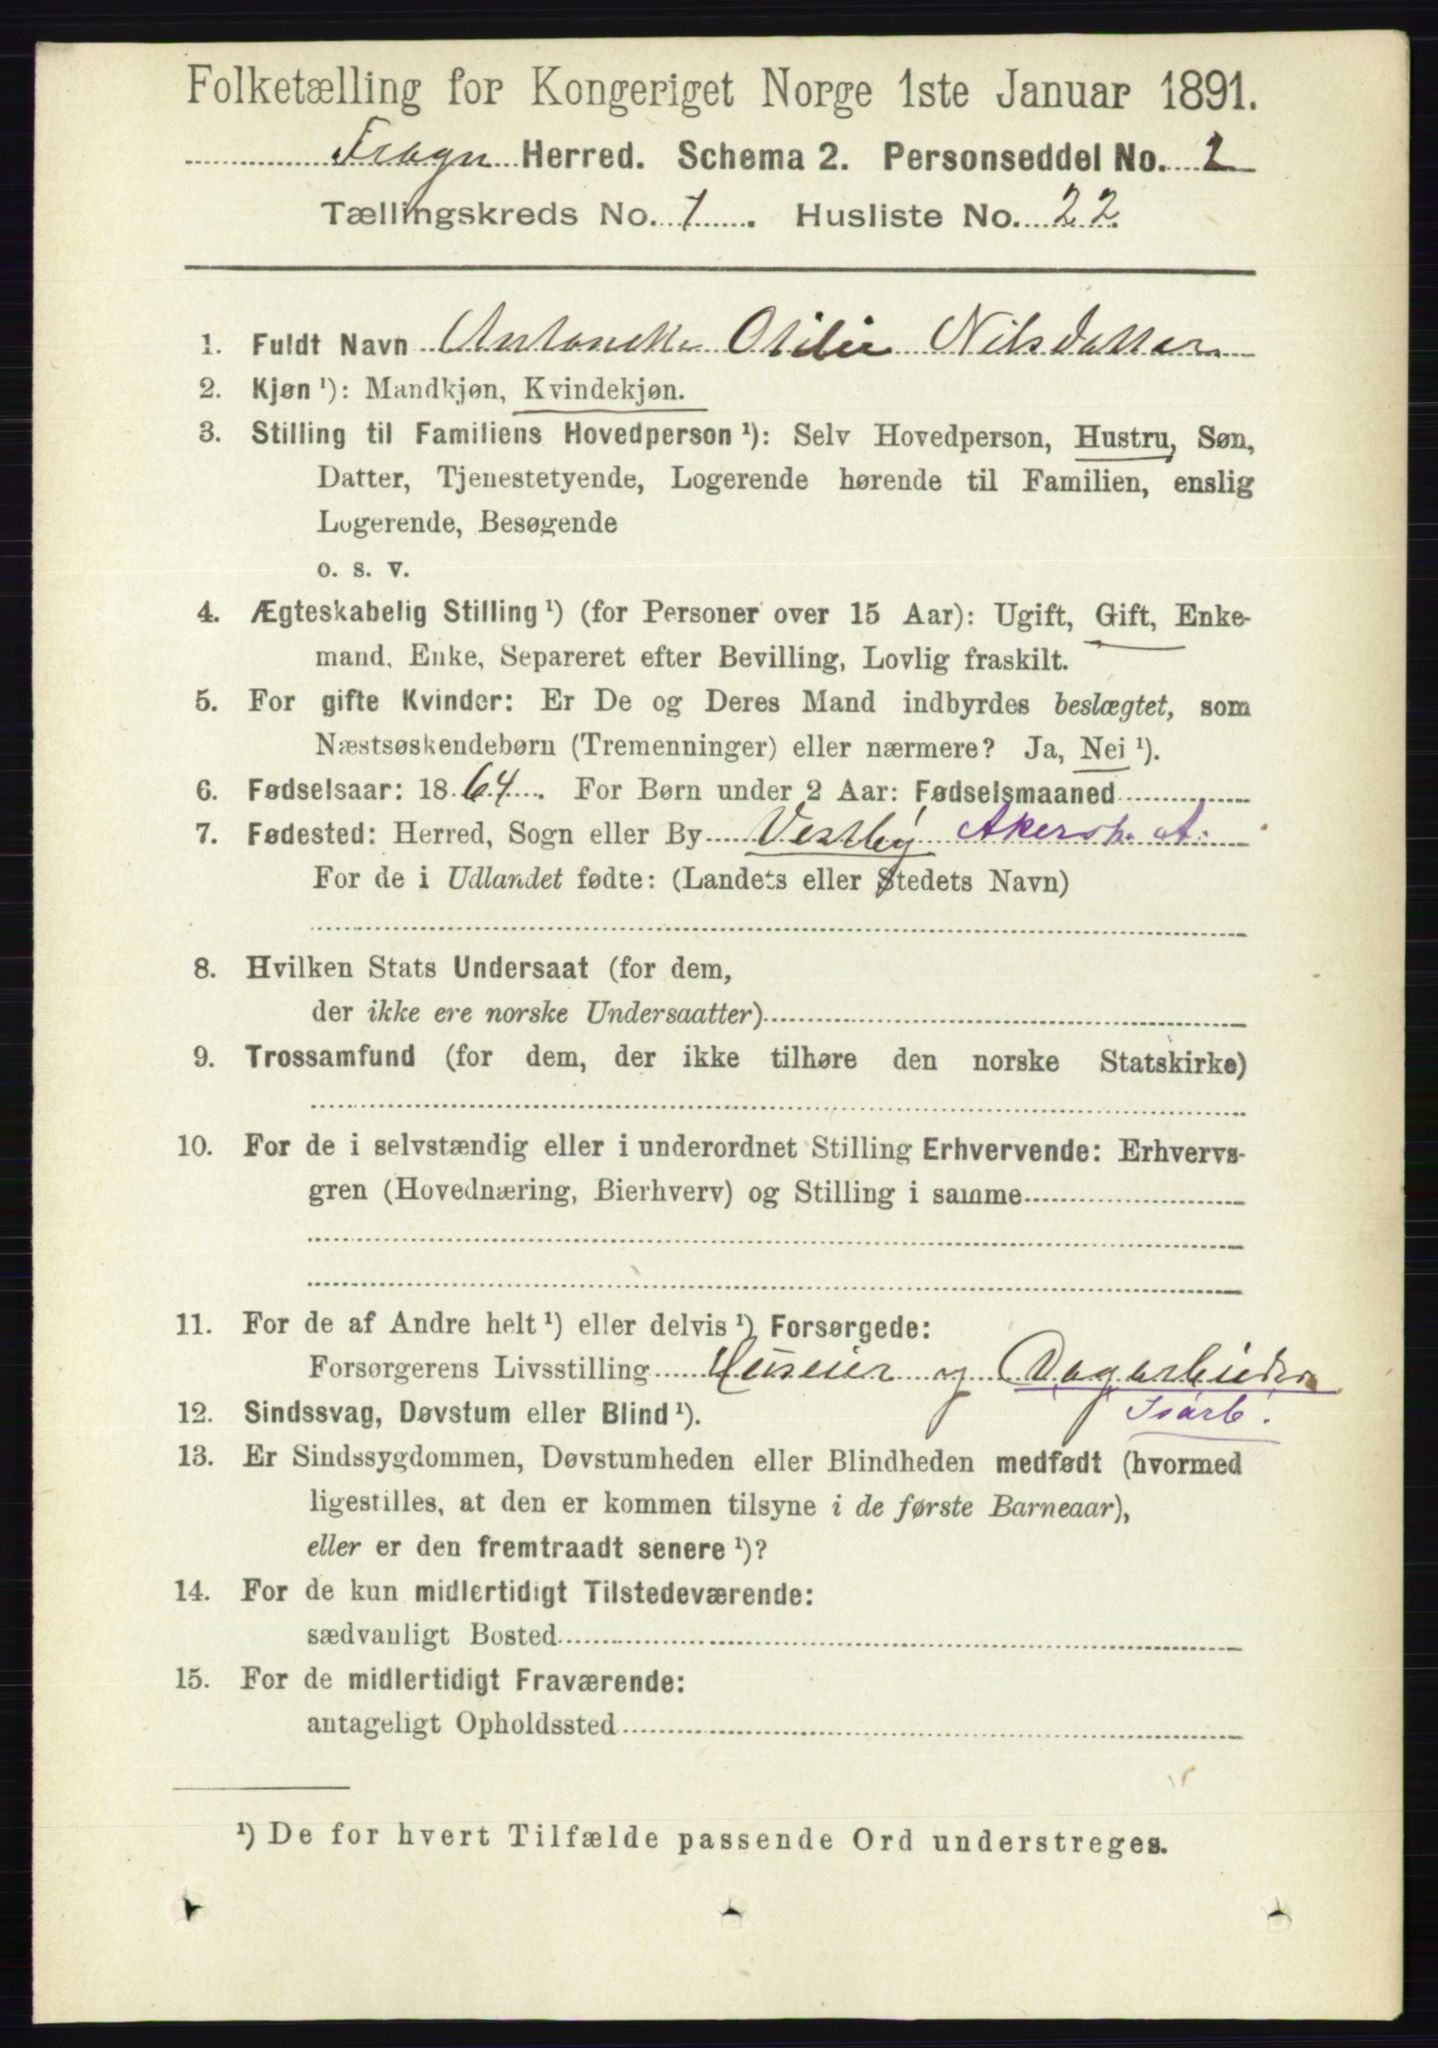 Folketælling for Kongeriget Norge 1ste Januar 1891.
Frogn Herred. Schema 2. Personseddel No. 2
Tællingskreds No. 1. Husliste No. 22.
1. Fuldt Navn Otilie Nilsdatter
2. Kjøn ¹): Mandkjøn, Kvindekjøn.
3. Stilling til Familiens Hovedperson ¹): Selv Hovedperson, Hustru, Søn,
Datter, Tjenestetyende, Logerende hørende til Familien, enslig
Logerende, Besøgende
o. s. v.
4. Ægteskabelig Stilling ¹) (for Personer over 15 Aar): Ugift, Gift, Enke-
mand, Enke, Separeret efter Bevilling, Lovlig fraskilt.
5. For gifte Kvinder: Er De og Deres Mand indbyrdes beslægtet, som
Næstsøskendebørn (Tremenninger) eller nærmere? Ja, Nei ¹).
6. Fødselsaar: 1864. For Børn under 2 Aar: Fødselsmaaned
7. Fødested: Herred, Sogn eller By Vestby Akersh. A.
For de i Udlandet fødte: (Landets eller Stedets Navn)
8. Hvilken Stats Undersaat (for dem,
der ikke ere norske Undersaatter)
9. Trossamfund (for dem, der ikke tilhøre den norske Statskirke)
10. For de i selvstændig eller i underordnet Stilling Erhvervende: Erhvervs-
gren (Hovednæring, Bierhverv) og Stilling i samme
11. For de af Andre helt ¹) eller delvis ¹) Forsørgede:
Forsørgerens Livsstilling Huseier og Dagarbeider
Isarb.
12. Sindssvag, Døvstum eller Blind ¹).
13. Er Sindssygdommen, Døvstumheden eller Blindheden medfødt (hvormed
ligestilles, at den er kommen tilsyne i de første Barneaar),
eller er den fremtraadt senere ¹)?
14. For de kun midlertidigt Tilstedeværende:
sædvanligt Bosted
15. For de midlertidigt Fraværende:
antageligt Opholdssted
¹) De for hvert Tilfælde passende Ord understreges.